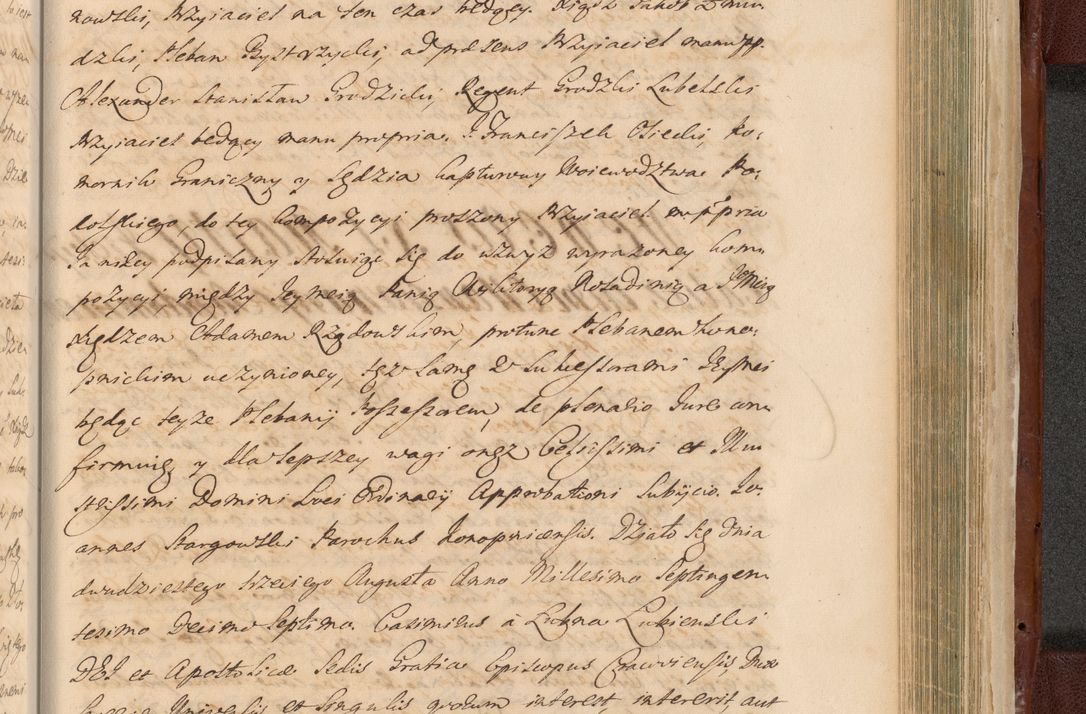 nowski, Przyiaciel na ten czas będący. Xiądz Jakób Zmu-
dzki, Pleban Bystrzycki, ad præsens Przyiaciel manu pp.
Alexander Stanisław Grodzicki Regent Grodzki Lubelski
Przyiaciel będący manu propria. J. Franciszek Osiecki, Ko-
mornik Graniczny y Sędzia kapturowy Woiewodztwa Po-
dolskiego, do tey kompozycyi proszony Przyiaciel mppria
Ja niżey podpisany stosuiąc się do wzwyż wyrażoney kom-
pozycyi, między Jeymcią Panią Wiktoryą a JoMcią
Xiędzem Adamem Rządowskim, protunc Plebanem Kono-
pnickim uczynioney, tęż samę z Sukcessorami Jeymci
będąc teyże Plebanij Possessorem, de plenario Jure con-
firmuię y dla lepszey wagi onęż Celsissimi et Illu-
strissimi Domini Loci Ordinarij Approbationi Subijcio. Jo-
annes Stargowski Parochus Konopnicensis. Działo się dnia
dwudziestego trzeciego Augusta Anno Millesimo Septingen-
tesimo Decimo Septimo. Casimirus à Łubna Łubienski
DEI et Apostolicæ Sedis Gratia Episcopus Cracoviensis, Dux
Universis et Singulis quorum interest, intererit, aut